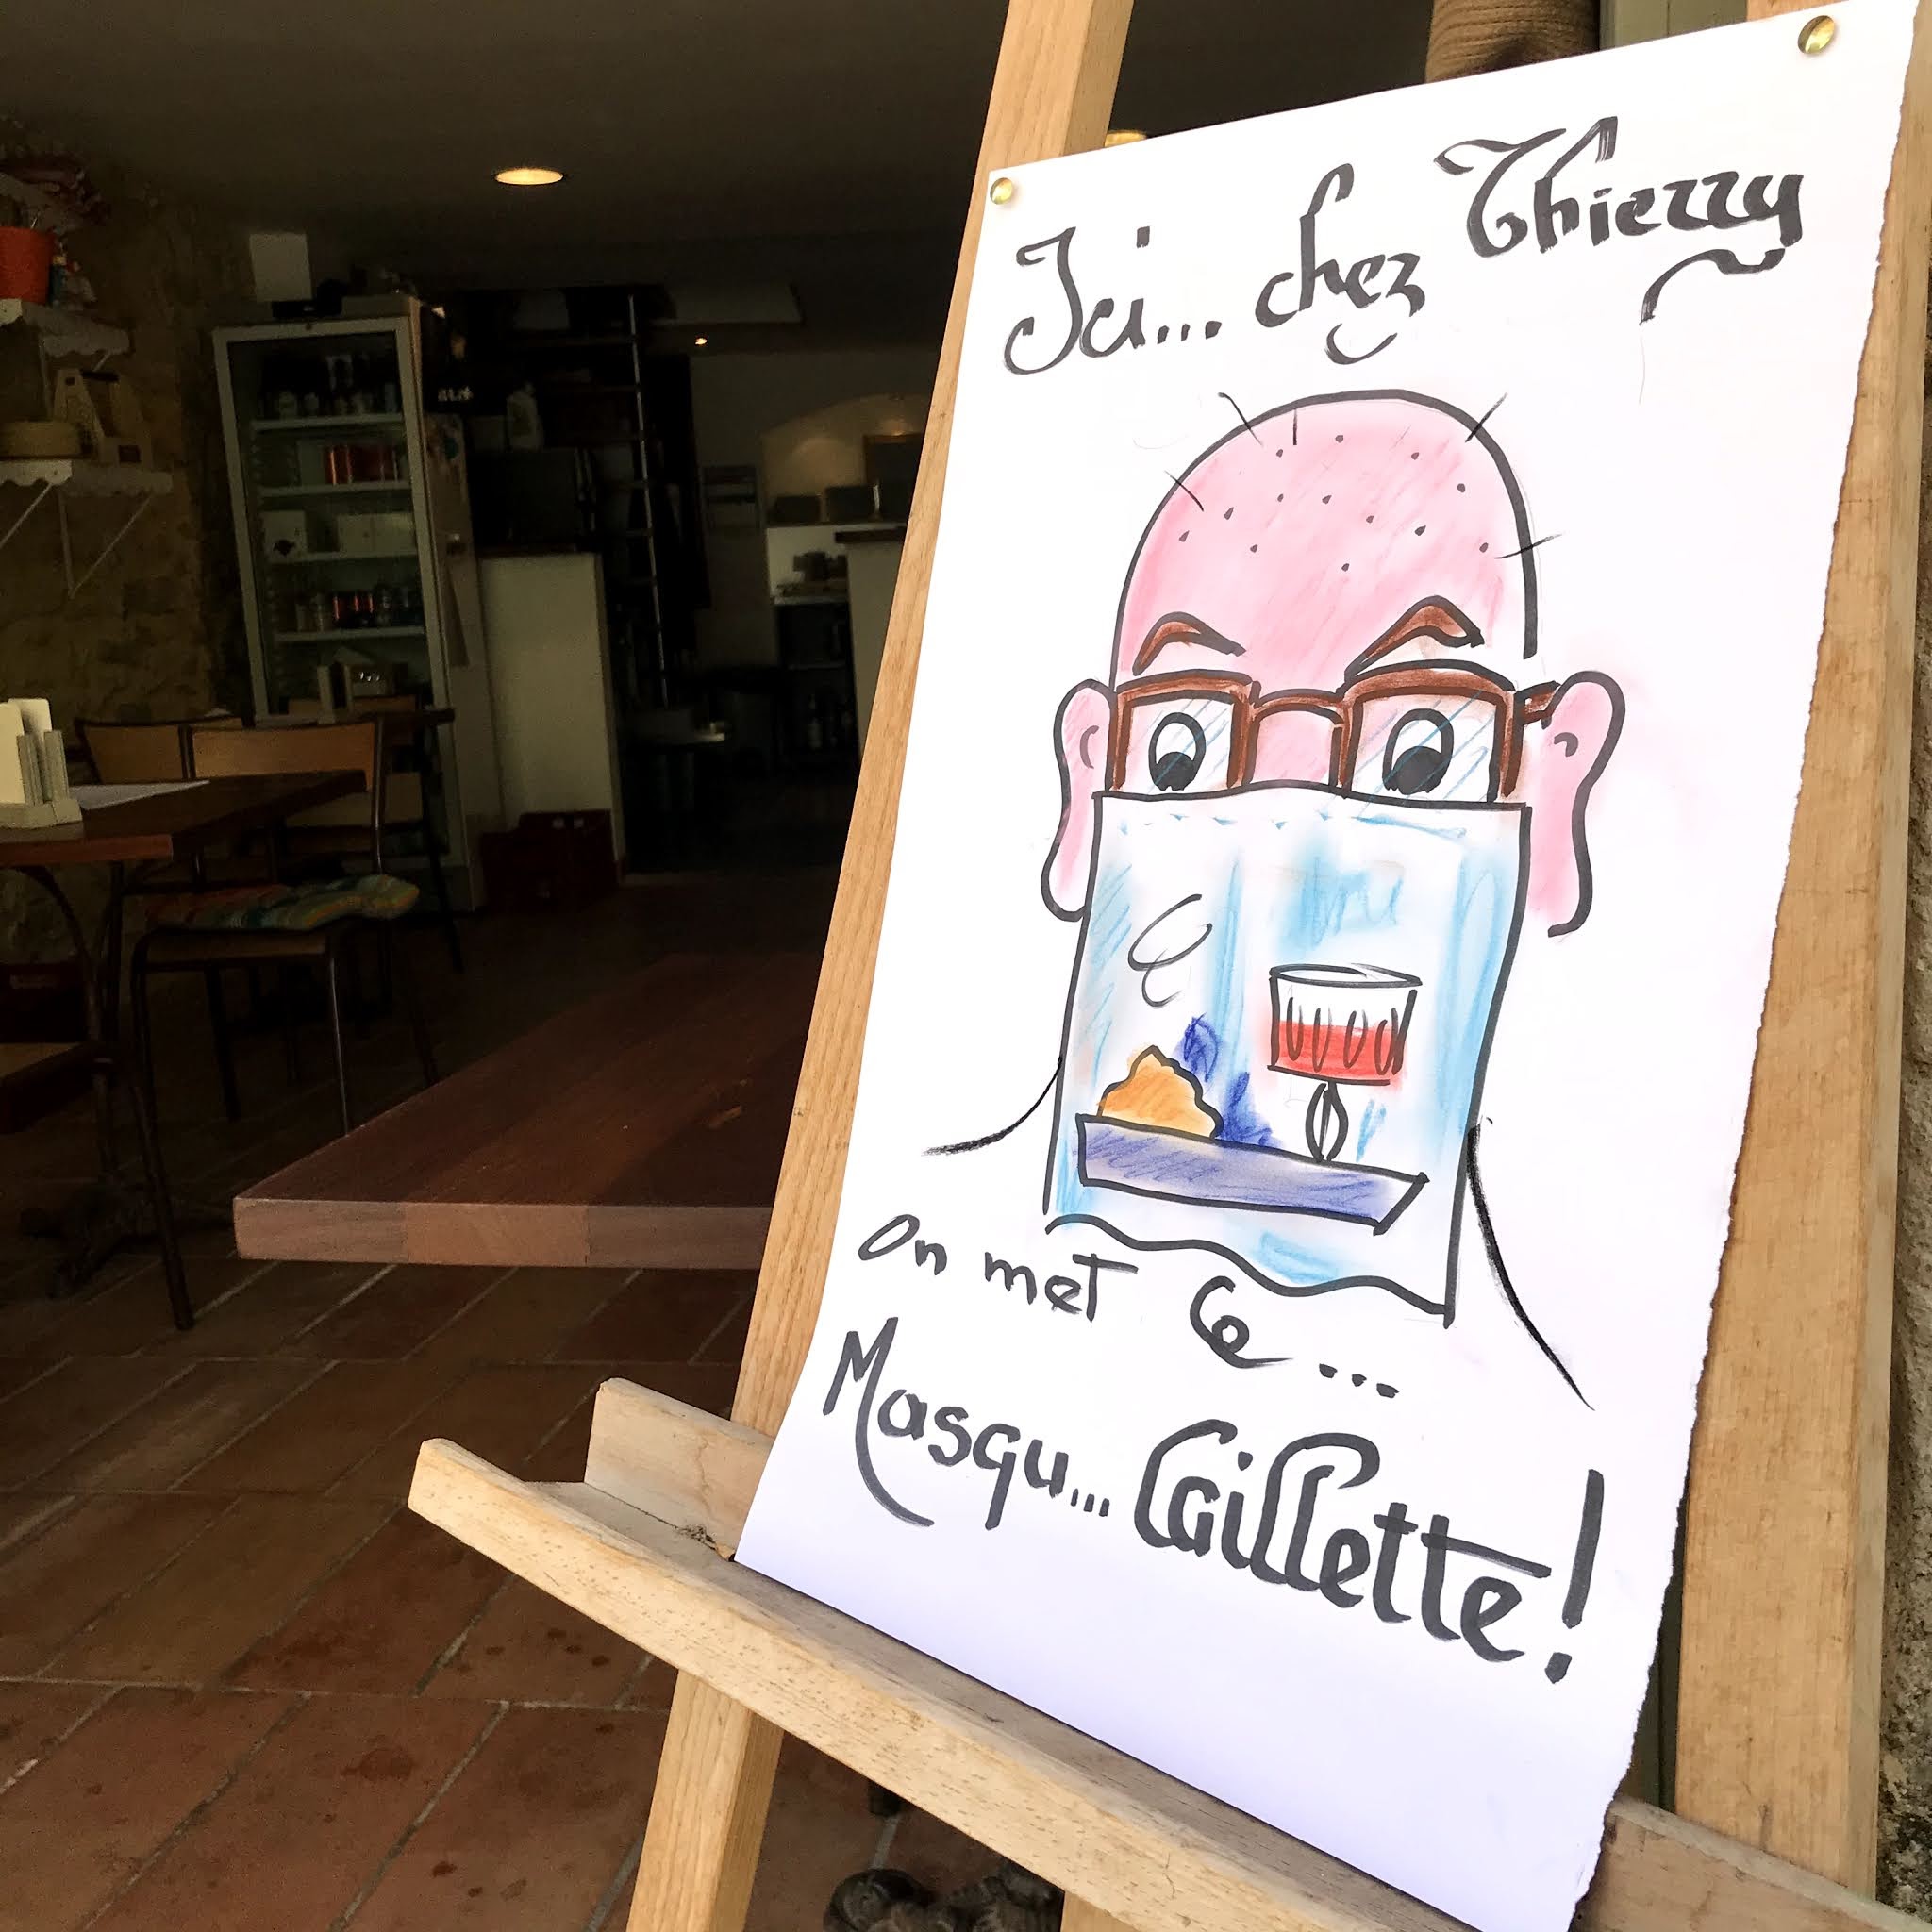 Ici... chez Thierry
On met Ce...
Masqu... Caillette!